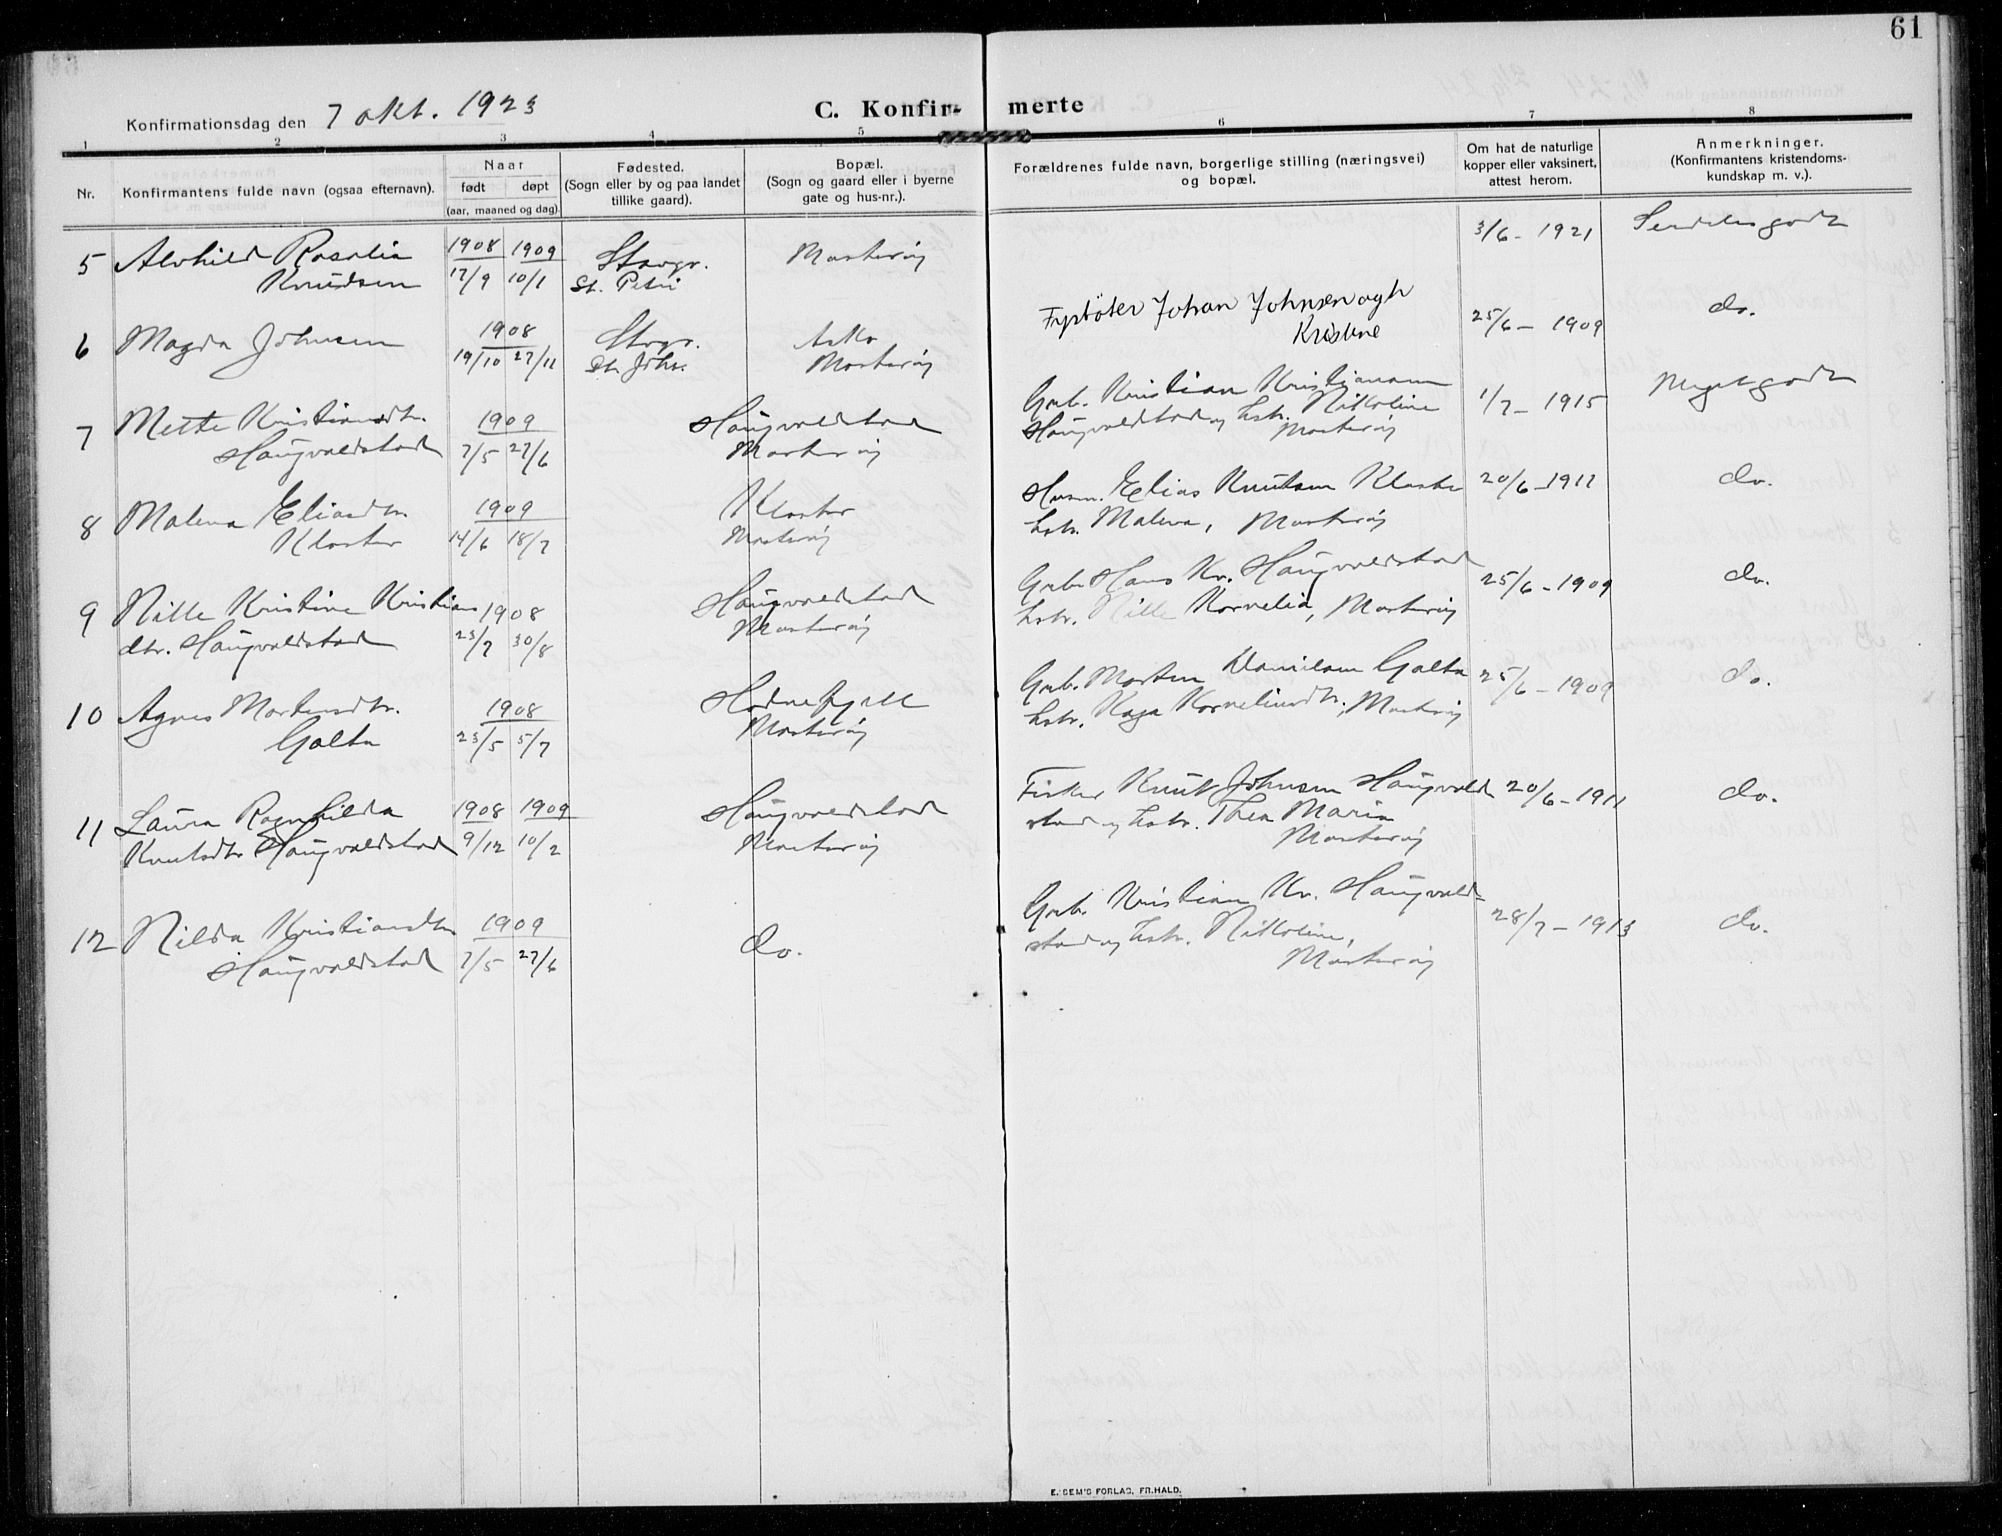 61
Konfirmationsdag den 7 okt. 1923
C. Konfir- merte
1 2 3 4 5 6 7 8
Nr.
Konfirmantens fulde navn (ogsaa efternavn).
Naar
født døpt
(aar, maaned og dag)
Fødested.
(Sogn eller by og paa landet
tillike gaard).
Bopæl.
(Sogn og gaard eller i byerne
gate og hus-nr.).
Forældrenes fulde navn, borgerlige stilling (næringsvei)
og bopæl.
Om hat de naturlige
kopper eller vaksinert,
attest herom.
Anmerkninger.
(Konfirmantens kristendoms-
kundskap m. v.).
5 Alvhild Rosalia 1908 1909 Stavgr. Mosterøy 3/6 - 1921 Serdelesgodt
Knudsen 17/9 10/1 St. Petri
6 Magda Johnsen 1908 Stvgr. Aske Fyrbøter Johan Johnsen og h 25/6 - 1909 do.
19/10 27/11 St. Johs. Mosterøy Kristine
7 Mette Kristiansdtr. 1909 Haugvaldstad Grb. Kristian Kristiansen 1/7 - 1915 Megetgodt
Haugvaldstad 7/5 27/6 Mosterøy Haugvaldstad og hstr. Nikoline
Mosterøy
8 Malena Eliasdtr. 1909 Kloster Husm. Elias Knutsen Kloster 20/6 - 1911 do.
Kloster 14/6 18/7 Mosterøy hstr. Malena, Mosterøy
9 Nille Kristine Kristians 1908 Haugvaldstad Grb. Hans Kr. Haugvaldstad 25/6 - 1909 do.
dtr. Haugvaldstad 23/7 30/8 Mosterøy hstr. Nille Kornelia, Mosterøy
10 Agnes Mortensdtr. 1908 Hodnefjell Grb. Morten Danielsen Galta 25/6 - 1909 do.
Galta 23/5 5/7 Mosterøy hstr. Kaja Korneliusdtr., Mosterøy
11 Laura Ragnhilda 1908 1909 Haugvaldstad Fisker Knut Johnsen Haugvald 20/6 - 1911 do.
Knutsdtr Haugvaldstad 9/12 10/2 Mosterøy stad og hstr. Thea Maria
Mosterøy
12 Nilda Kristiansdtr 1909 do. Grb. Kristian Kr. Haugvald- 28/7 - 1913 do.
Haugvaldstad 7/5 27/6 stad og hstr. Nikoline,
Mosterøy
E. SEM'S FORLAG, FR.HALD.